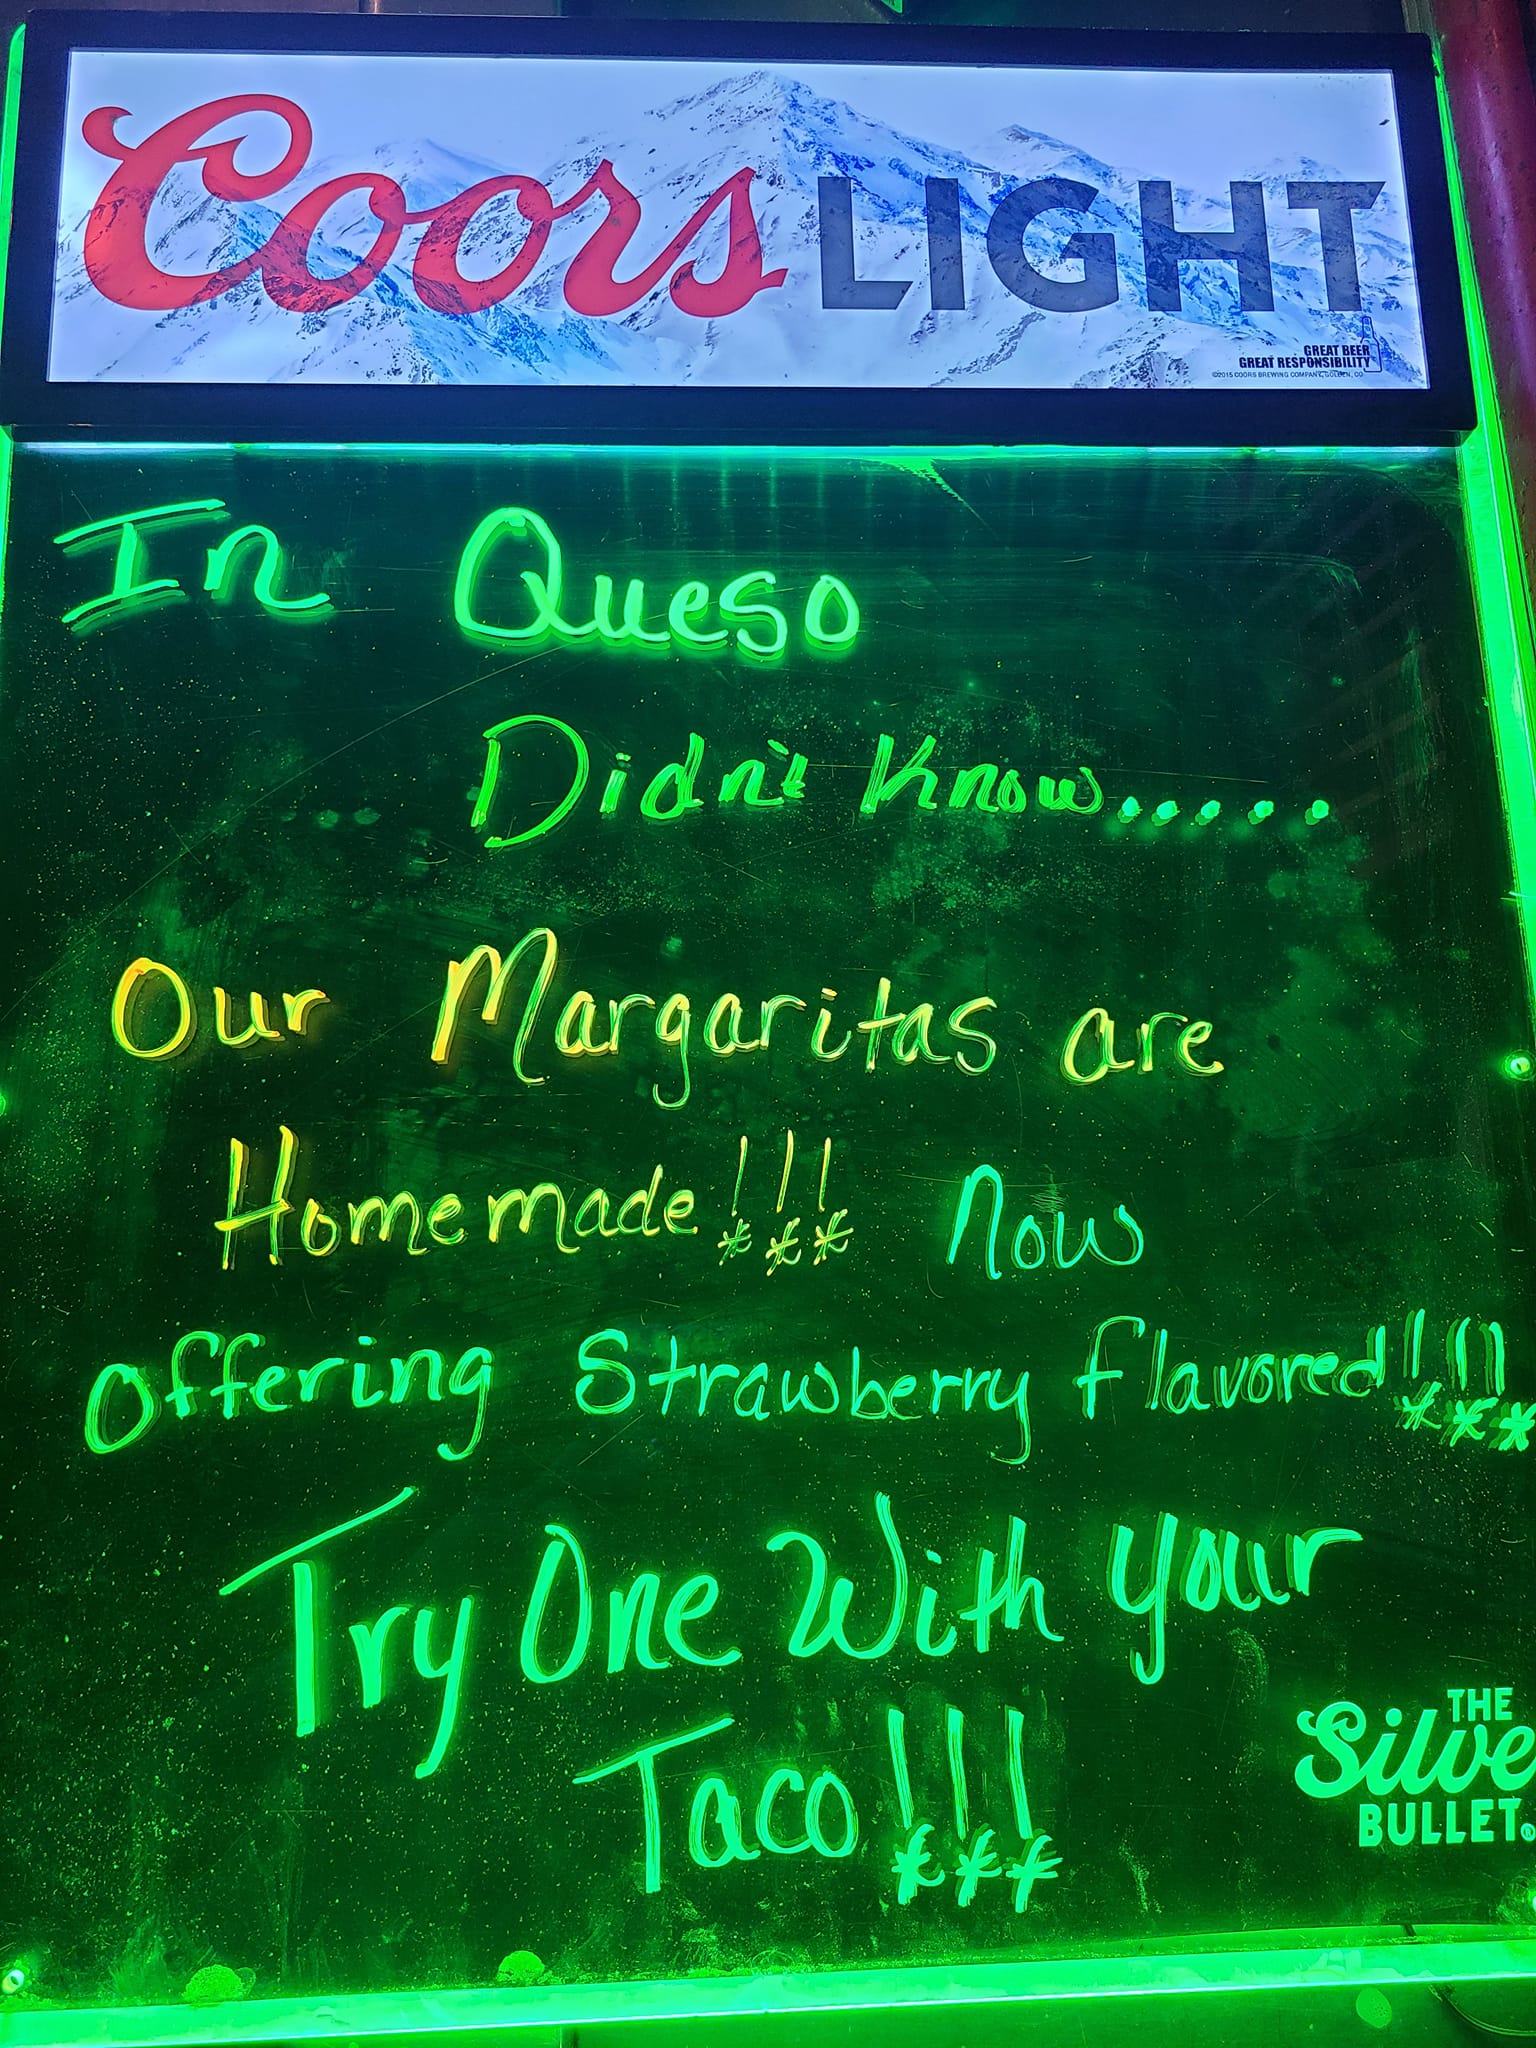 Coors LIGHT
GREAT BEER
GREAT RESPONSIBILITY
©2015 COORS BREWING COMPANY, GOLDEN, CO
In Queso
Didn't Know......
Our Margaritas are
Homemade!!! Now
Offering Strawberry flavored!!!
Try One With your
Taco!!!
THE
Silve
BULLET®